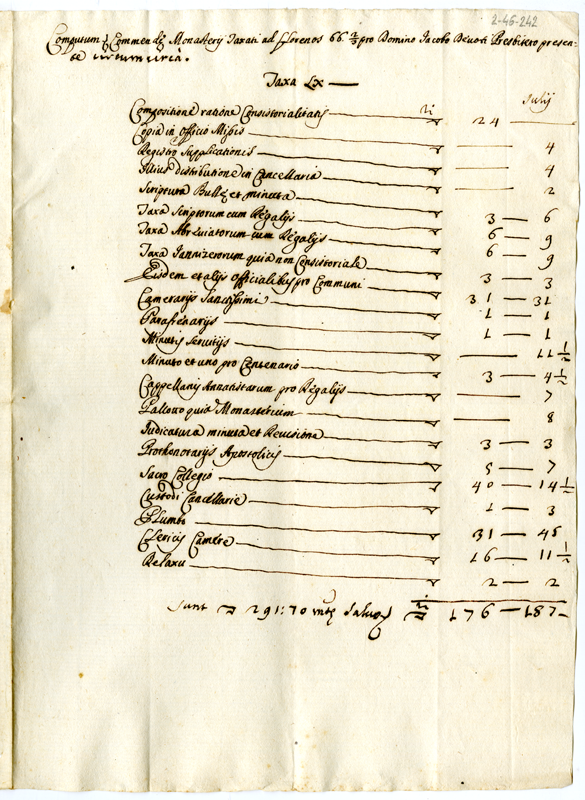 2-46-242
Computum Commendę Monasterij Taxati ad florenos 66 2/3 pro Domino Jacobo Bevoti Presbitero presen-
te
Taxa Lx
Julij
Compositione ratione Consistorialitatis 24
Copia in officio Missis 4
Registro Supplicationis 4
Illius distributione in Cancellaria 2
Scriptura Bullę et minuta
Taxa Scriptorum cum Regalijs 3 — 6
Taxa Abreviatorum cum Regalijs 6 — 9
Taxa Iannizerorum quia non Consistoriale 6 — 9
Eisdem et alijs officialibus pro Communi 3 — 3
Camerarijs Sanctissimi 31 — 31
Parafrenarijs 1 — 1
Minutis Servitijs 1 — 1
Minuto et uno pro Centenario 11 1/2
Cappellanis Annatistarum pro Regalijs 3 — 4 1/2
quia Monasterium 7
Iudicatura minuta et Revisione 8
Prothonotarijs Apostolicis 3 — 3
Sacro Collegio 5 — 7
Custodi Cancellarie 40 — 14 1/2
Plumbo 1 — 3
Clericis Camere 31 — 45
Relaxu 16 — 11 1/2
2 — 2
Sunt 291:70 176 — 187